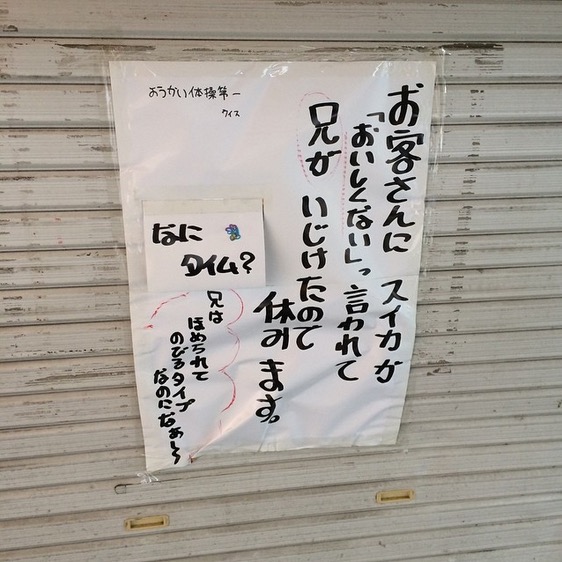 お客さんに スイカが
「おいしくない」って言われて
兄が いじけたので
休みます。
おうかい体操第一
クイズ
なに
タイム?
兄は
ほめられて
のびるタイプ
なのになぁ〜